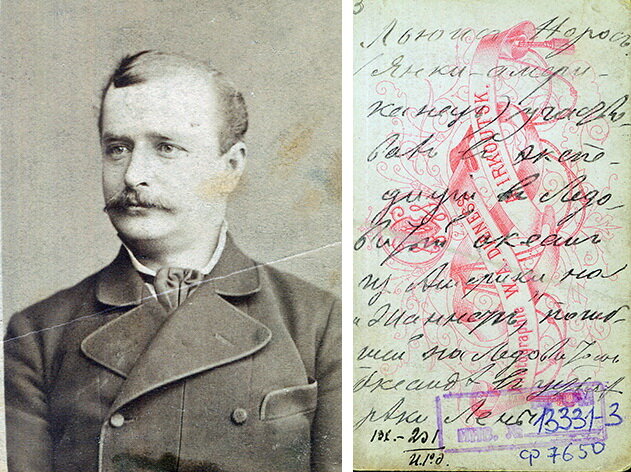 Льюисъ Норосъ
(Янки-амери-
канецъ) участво-
валъ въ экспе-
диціи въ Ледо-
витый океанъ
изъ Америки на
Жаннетѣ, погиб-
шей на Ледовитомъ
океанѣ въ
рѣки Лены
13331-3
ф 7650
IRKOUTSK.